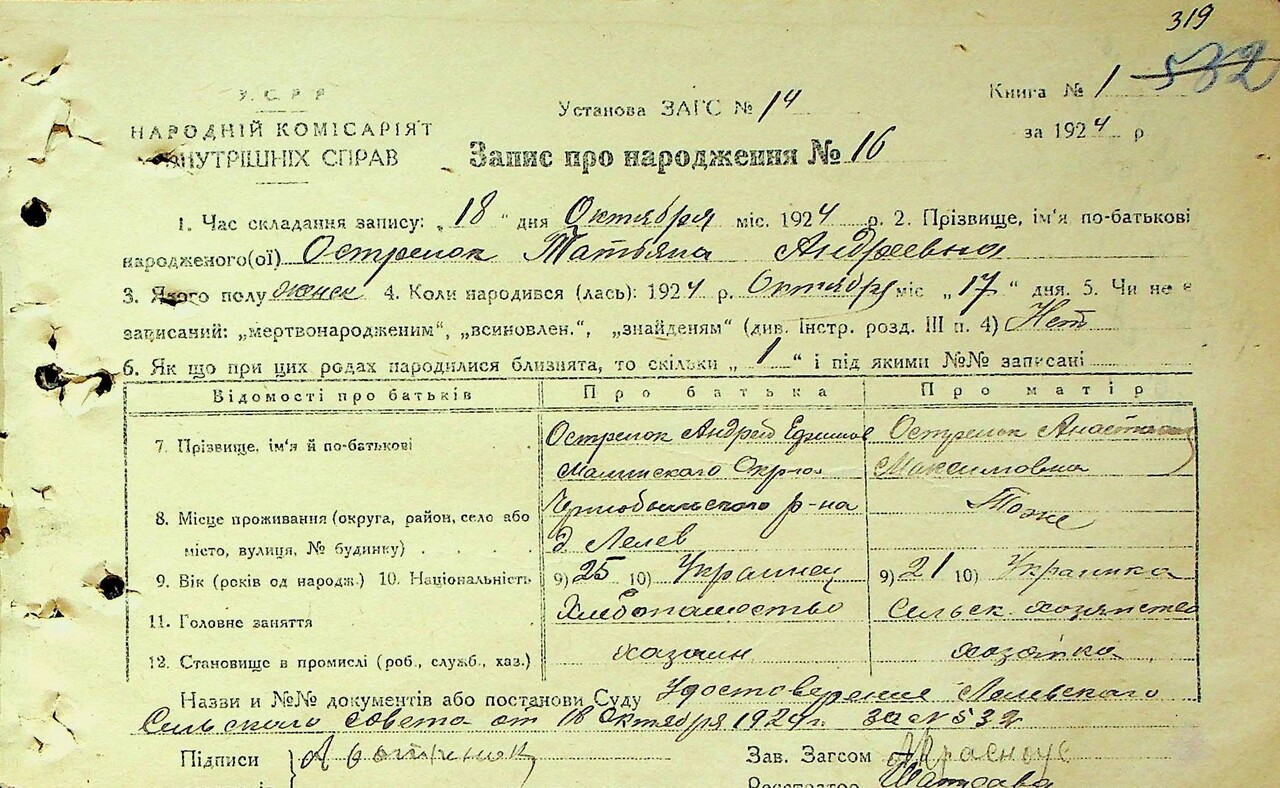 319
Книга № 1 532
У.С.Р.Р.
Установа ЗАГС № 14
за 1924 р
НАРОДНІЙ КОМІСАРІЯТ
ВНУТРІШНІХ СПРАВ
Запис про народження № 16
1. Час складання запису: „18" дня Октября міс. 1924 р. 2. Прізвище, ім'я по-батькові
народженого(ої) Остренок Татьяна Андреевна
3. Якого полу женск 4. Коли народився (лась): 1924 р. Октября міс „17" дня. 5. Чи не є
записаний: „мертвонародженим", „всиновлен.", „знайденям" (див. Інстр. розд. III п. 4) Нет
6. Як що при цих родах народилися близнята, то скільки „1" і під якими №№ записані
Відомості про батьків Про батька Про матір
7. Прізвище, ім'я й по-батькові Остренок Андрей Ефимов Остренок Анастасия
Малинского Окр-га Максимовна
8. Місце проживання (округа, район, село або Чернобыльского р-на Тоже
місто, вулиця, № будинку) д Лелев
9. Вік (років од народж.) 10. Національність 9) 25 10) Украинец 9) 21 10) Украинка
11. Головне заняття Хлебопашество Сельск. хозяйство
12. Становище в промислі (роб., служб., хаз.) хазаин хазайка
Назви и №№ документів або постанови Суду Удостоверение Лелевского
Сельского совета от 18 Октября 1924 г. за № 532
Підписи А Остренок Зав. Загсом Красноус
Реєстратор